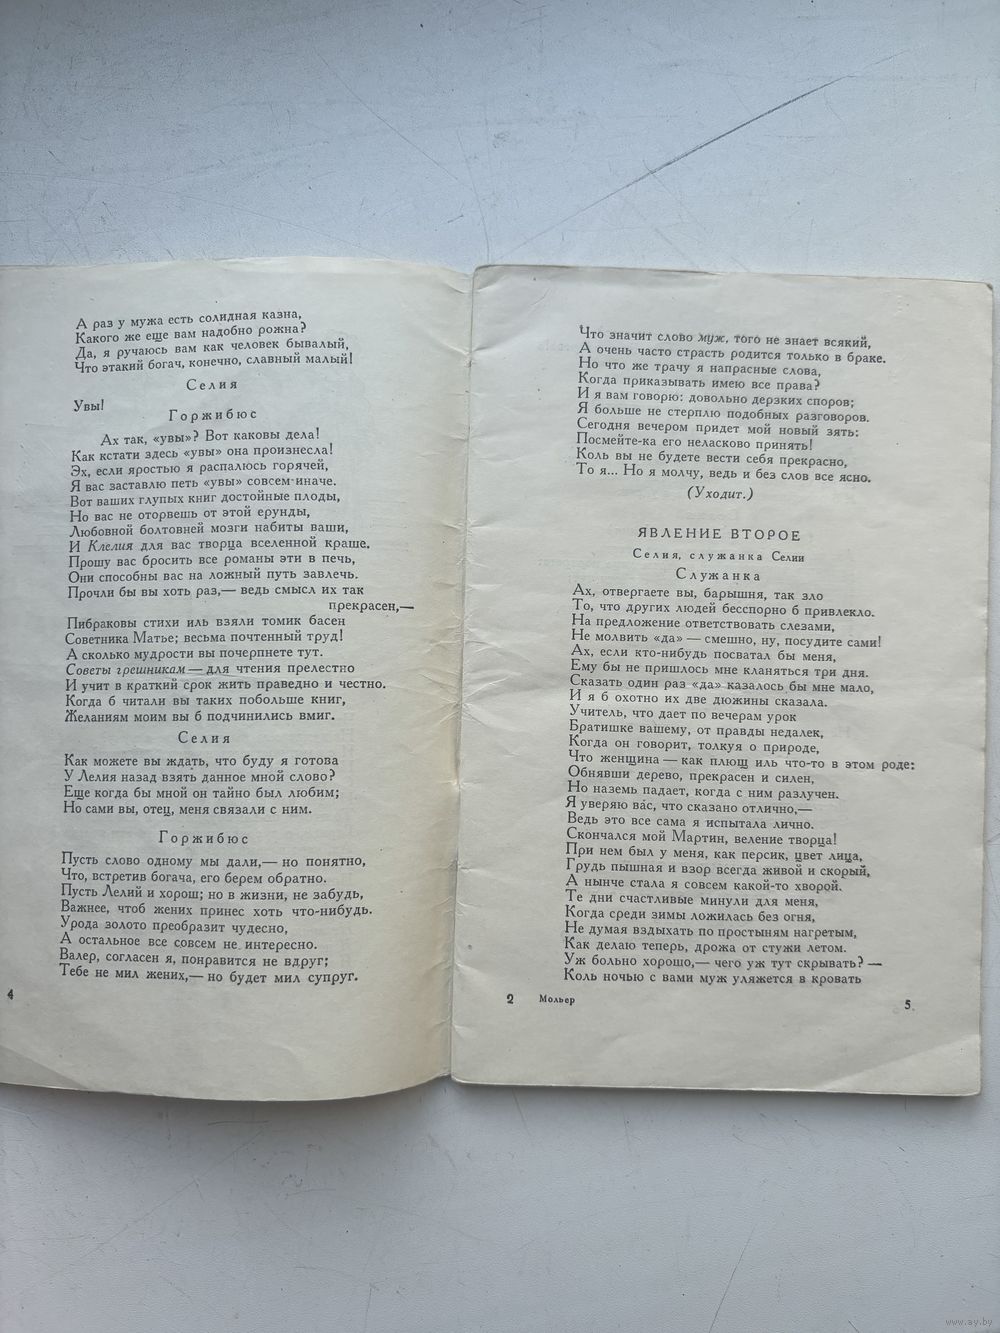 А раз у мужа есть солидная казна,
Какого же еще вам надобно рожна?
Да, я ручаюсь вам как человек бывалый,
Что этакий богач, конечно, славный малый!
Селия
Увы!
Горжибюс
Ах так, «увы»? Вот каковы дела!
Как кстати здесь «увы» она произнесла!
Эх, если яростью я распалюсь горячей,
Я вас заставлю петь «увы» совсем иначе.
Вот ваших глупых книг достойные плоды,
Но вас не оторвешь от этой ерунды,
Любовной болтовней мозги набиты ваши,
И Клелия для вас творца вселенной краше.
Прошу вас бросить все романы эти в печь,
Они способны вас на ложный путь завлечь.
Прочли бы вы хоть раз,— ведь смысл их так
прекрасен,—
Пибраковы стихи иль взяли томик басен
Советника Матье; весьма почтенный труд!
А сколько мудрости вы почерпнете тут.
Советы грешникам — для чтения прелестно
И учит в краткий срок жить праведно и честно.
Когда б читали вы таких побольше книг,
Желаниям моим вы б подчинились вмиг.
Селия
Как можете вы ждать, что буду я готова
У Лелия назад взять данное мной слово?
Еще когда бы мной он тайно был любим;
Но сами вы, отец, меня связали с ним.
Горжибюс
Пусть слово одному мы дали,— но понятно,
Что, встретив богача, его берем обратно.
Пусть Лелий и хорош; но в жизни, не забудь,
Важнее, чтоб жених принес хоть что-нибудь.
Урода золото преобразит чудесно,
А остальное все совсем не интересно.
Валер, согласен я, понравится не вдруг;
Тебе не мил жених,— но будет мил супруг.
4
Что значит слово муж, того не знает всякий,
А очень часто страсть родится только в браке.
Но что же трачу я напрасные слова,
Когда приказывать имею все права?
И я вам говорю: довольно дерзких споров;
Я больше не стерплю подобных разговоров.
Сегодня вечером придет мой новый зять:
Посмейте-ка его неласково принять!
Коль вы не будете вести себя прекрасно,
То я... Но я молчу, ведь и без слов все ясно.
(Уходит.)
ЯВЛЕНИЕ ВТОРОЕ
Селия, служанка Селии
Служанка
Ах, отвергаете вы, барышня, так зло
То, что других людей бесспорно б привлекло.
На предложение ответствовать слезами,
Не молвить «да» — смешно, ну, посудите сами!
Ах, если кто-нибудь посватал бы меня,
Ему бы не пришлось мне кланяться три дня.
Сказать один раз «да» казалось бы мне мало,
И я б охотно их две дюжины сказала.
Учитель, что дает по вечерам урок
Братишке вашему, от правды недалек,
Когда он говорит, толкуя о природе,
Что женщина — как плющ иль что-то в этом роде:
Обнявши дерево, прекрасен и силен,
Но наземь падает, когда с ним разлучен.
Я уверяю вас, что сказано отлично,—
Ведь это все сама я испытала лично.
Скончался мой Мартин, веление творца!
При нем был у меня, как персик, цвет лица,
Грудь пышная и взор всегда живой и скорый,
А нынче стала я совсем какой-то хворой.
Те дни счастливые минули для меня,
Когда среди зимы ложилась без огня,
Не думая вздыхать по простыням нагретым,
Как делаю теперь, дрожа от стужи летом.
Уж больно хорошо,— чего уж тут скрывать? —
Коль ночью с вами муж уляжется в кровать
2 Мольер
5
www.ay.by